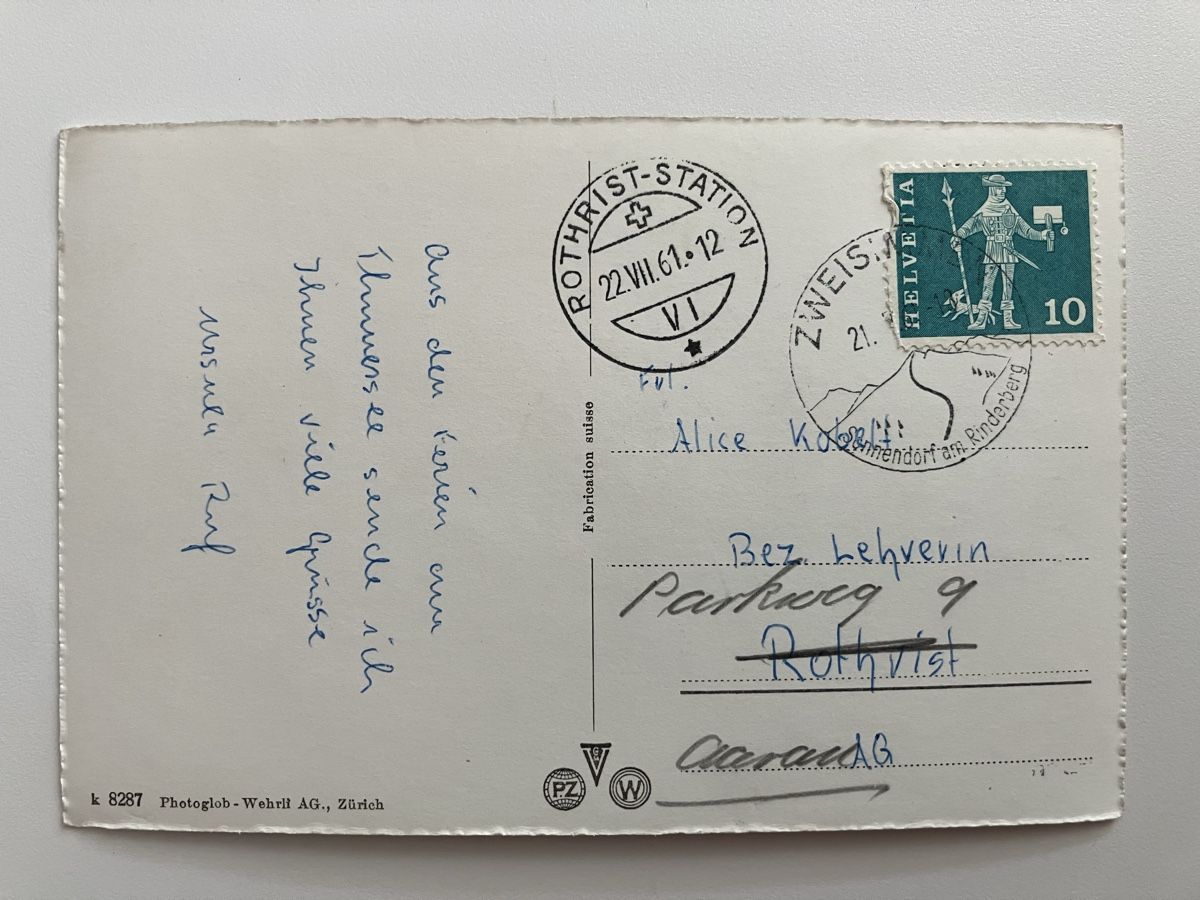 Aus den Ferien am
Thunersee sende ich
Ihnen viele Grüsse
Ursula Ruf
k 8287 Photoglob-Wehrli AG., Zürich
Fabrication suisse
PZ
W
ROTHRIST-STATION
22.VII.61.•12
VI
HELVETIA
10
21.
Sonnendorf am Rinderberg
Frl.
Alice Kobelt
Bez. Lehrerin
Parkweg 9
Rothrist
Aarau AG